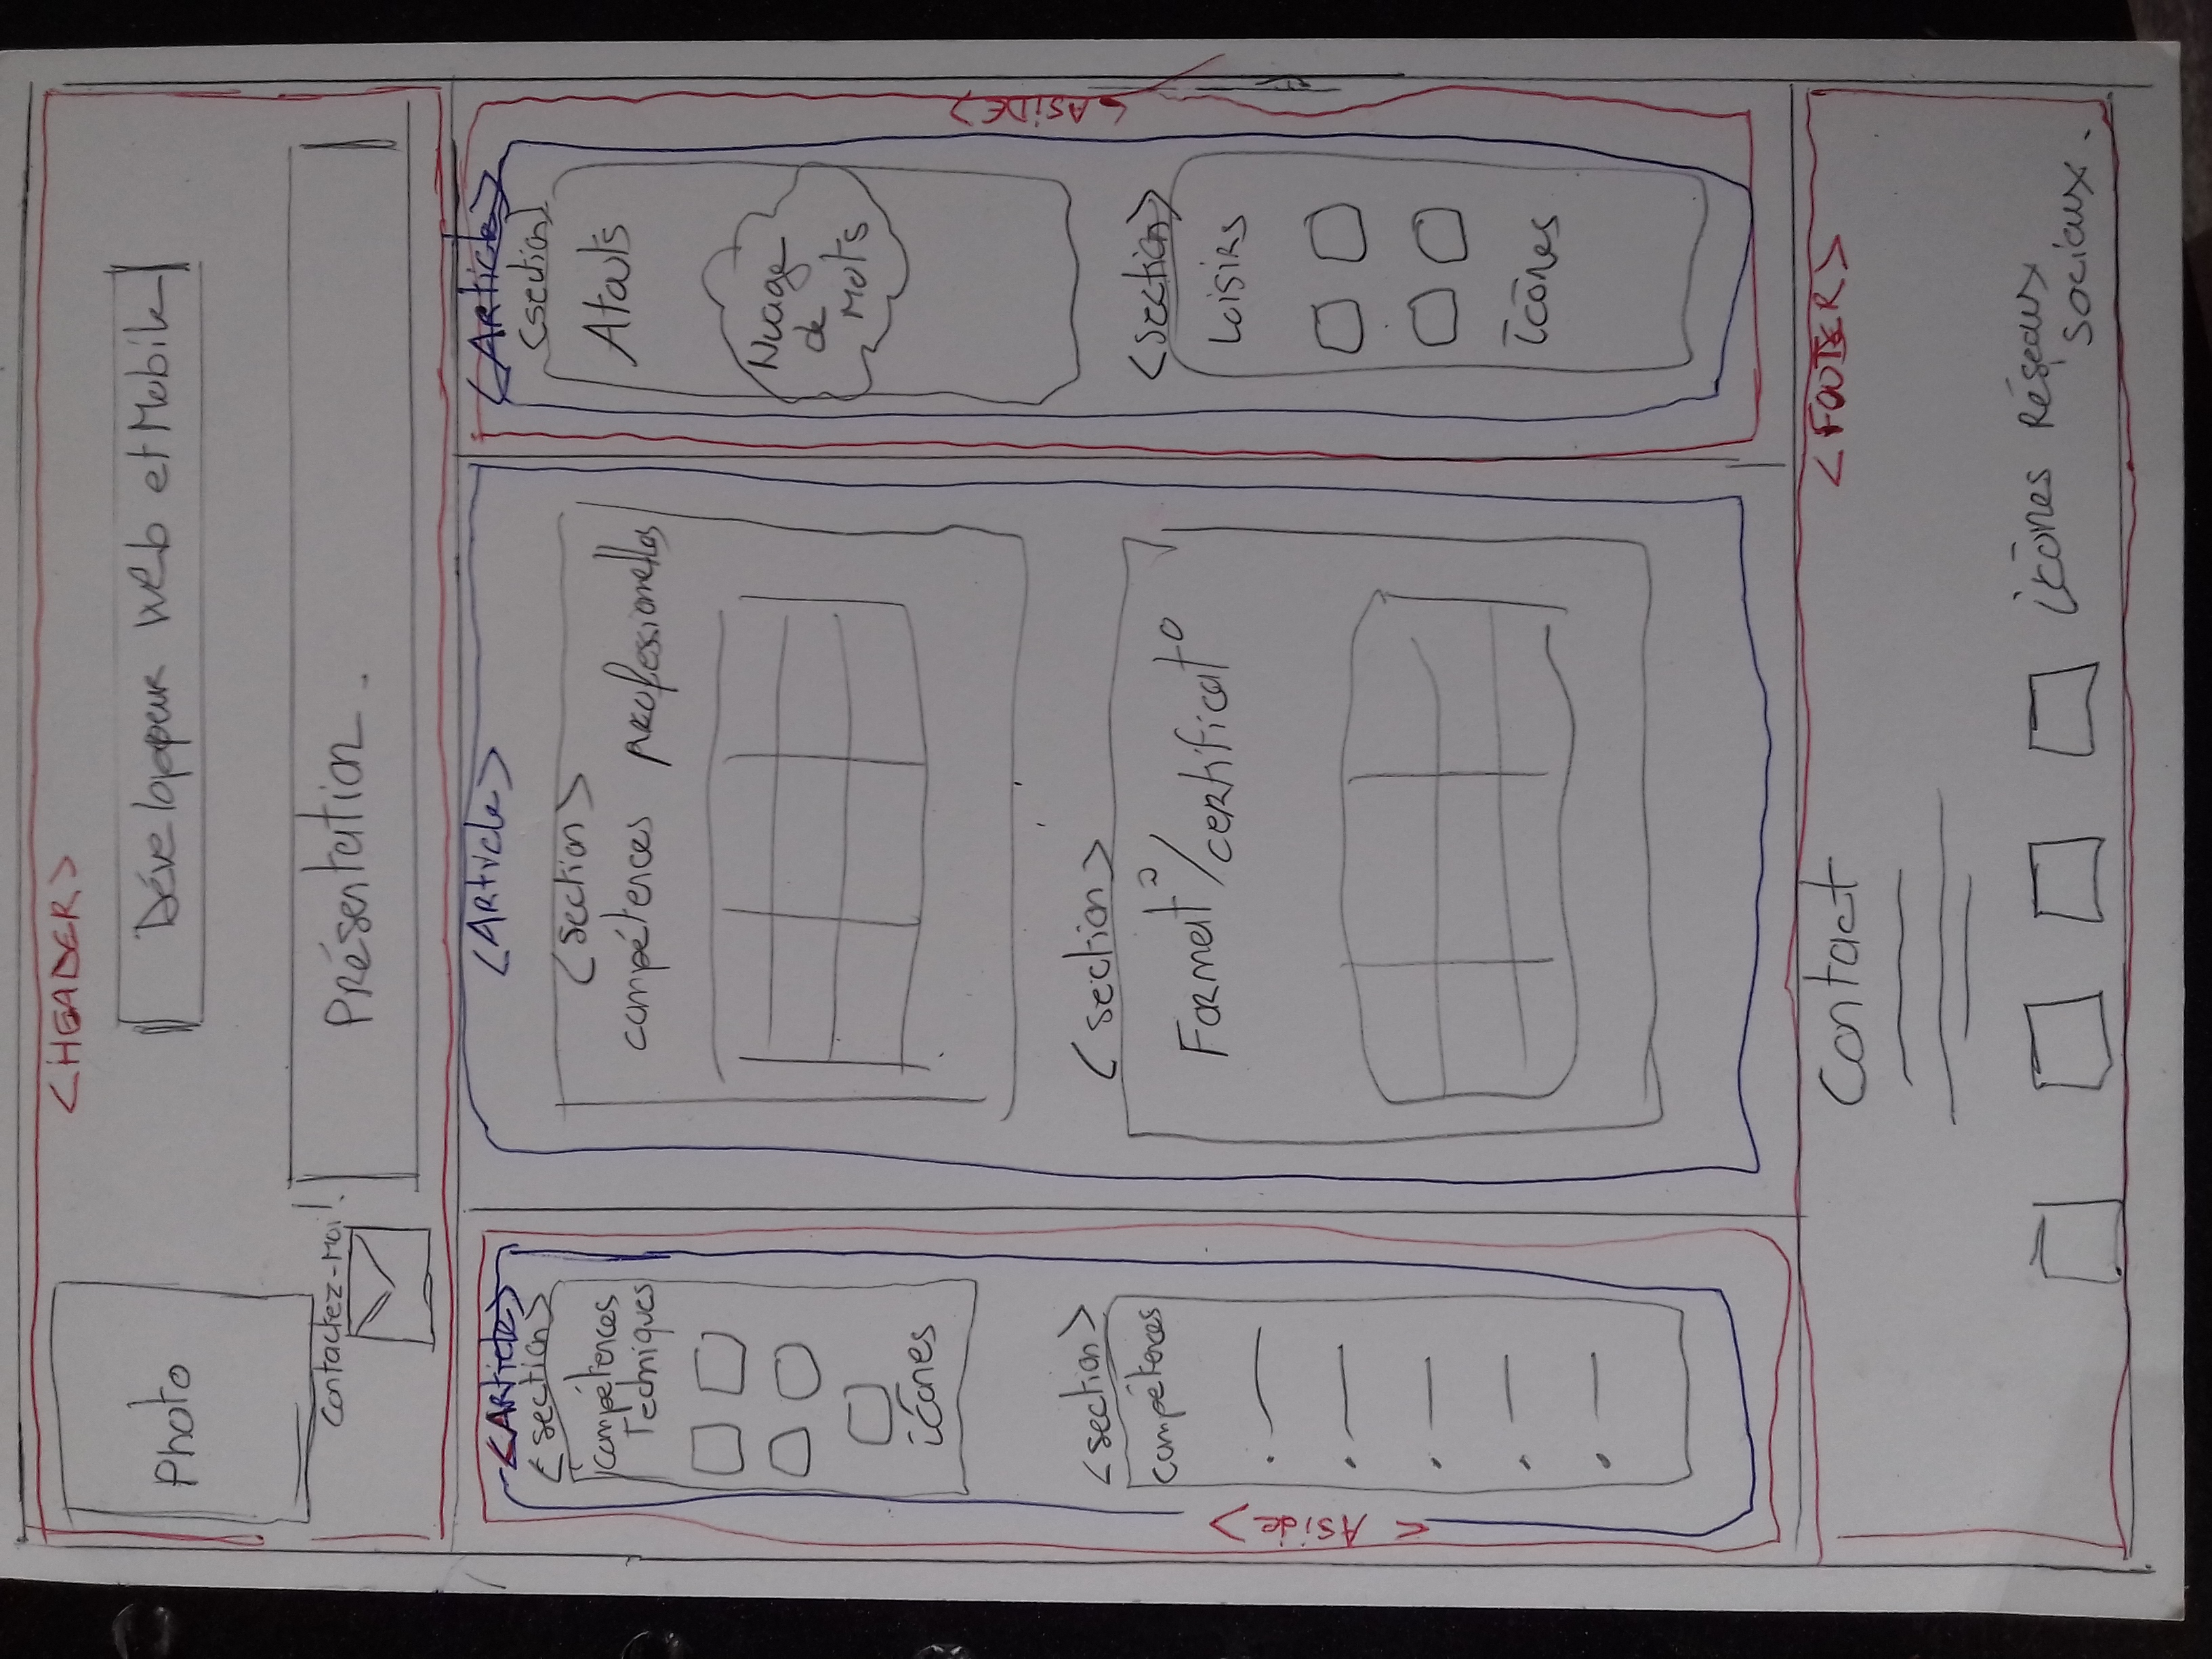 <HEADER>
Photo
Développeur Web et Mobile
Contactez-Moi!
Présentation.
<Article>
<section>
compétences
Techniques
icônes
<section>
compétences
<Aside>
<Article>
<section>
compétences professionnelles
<section>
Format°/certificat°
<Article>
<section>
Atouts
Nuage
de
Mots
<section>
Loisirs
icônes
<ASIDE>
Contact
<FOOTER>
icônes Réseaux
sociaux.